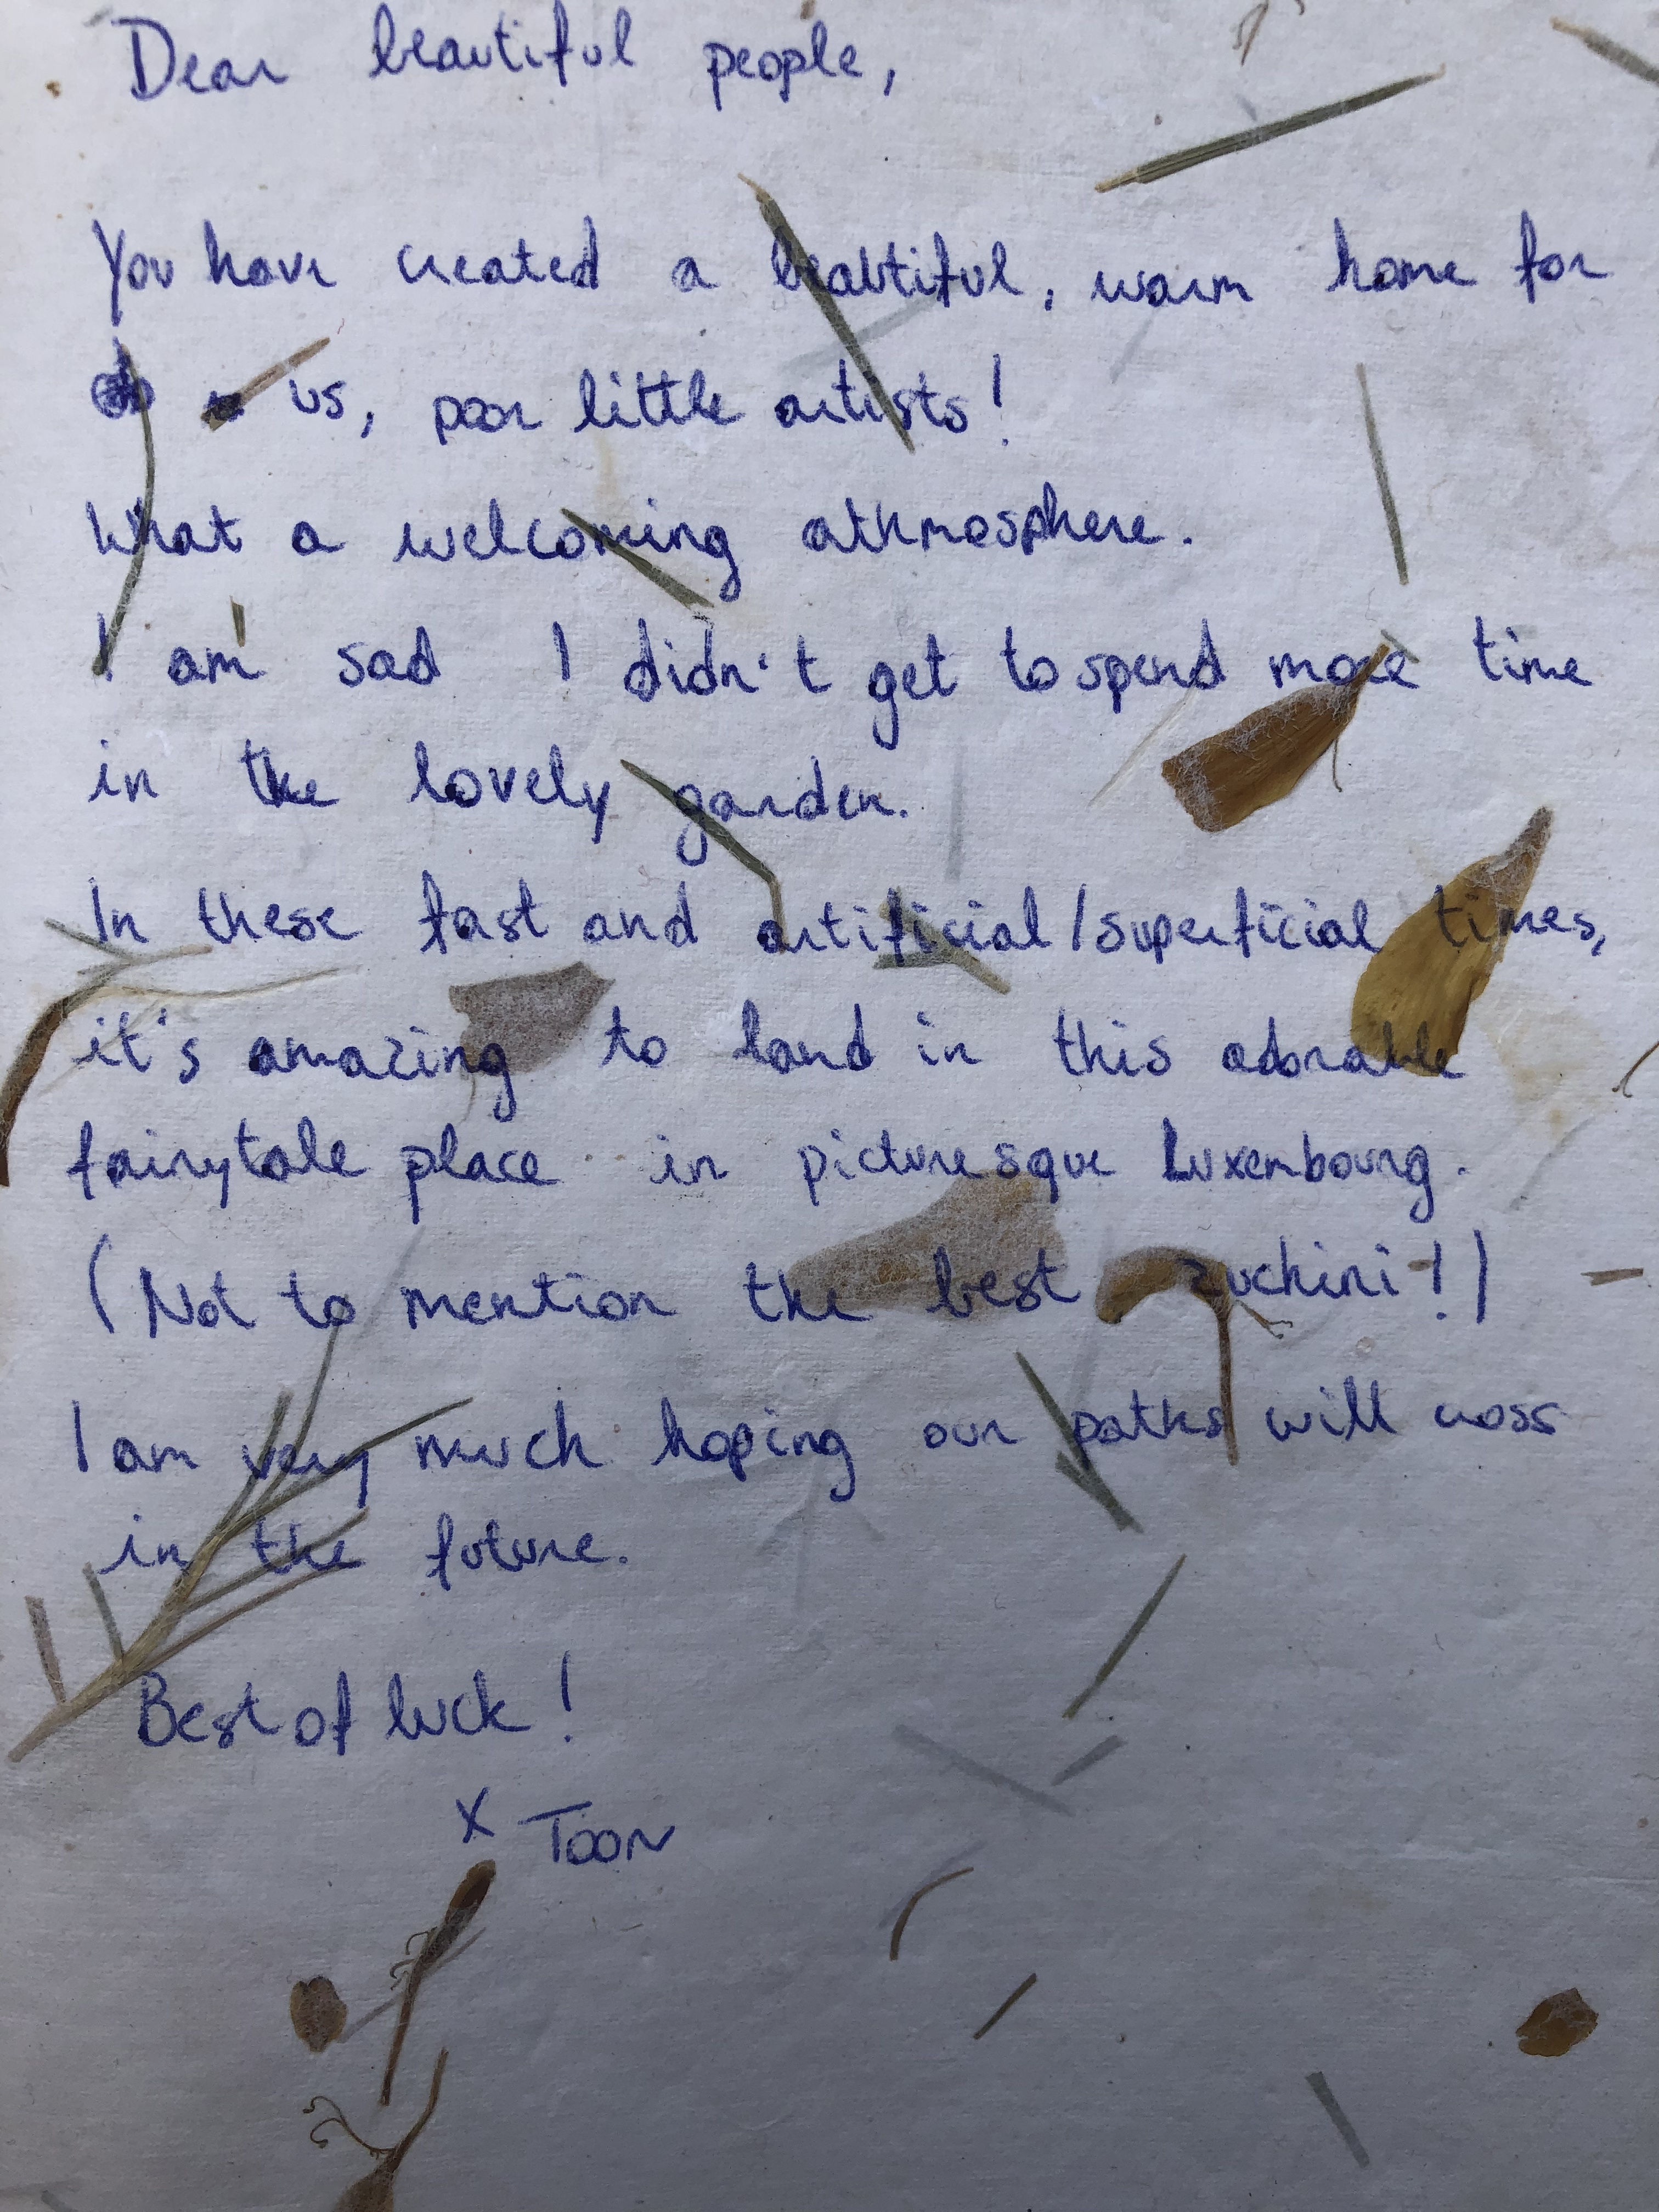 Dear beautiful people,
You have created a beautiful, warm home for
us, poor little artists!
What a welcoming athmosphere.
I am sad I didn't get to spend more time
in the lovely garden.
In these fast and artificial/superficial times,
it's amazing to land in this adorable
fairytale place in picturesque Luxembourg.
(Not to mention the best zuchini!)
I am very much hoping our paths will cross
in the future.
Best of luck!
x Toon